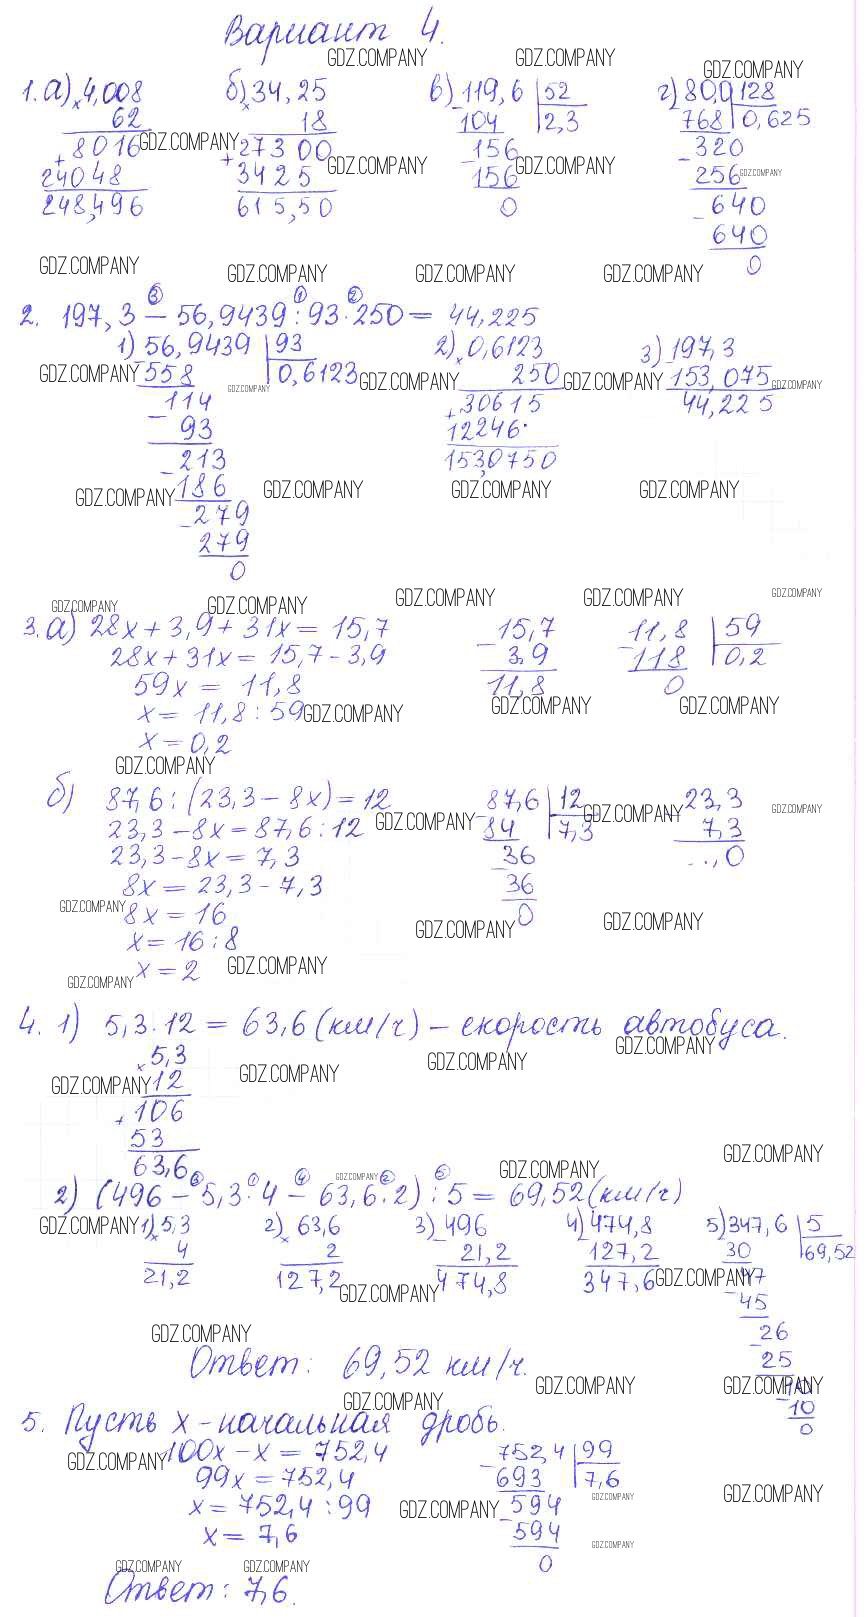 Вариант 4.
1. а) × 4,008 б) × 34,25 в) 119,6 | 52 г) 80,0 | 128
62 18 104 | 2,3 768 | 0,625
+ 8016 + 27300 - 156 - 320
24048 3425 156 256
248,496 615,50 0 - 640
640
0
2. 197,3 ③ − 56,9439 ① : 93 ② · 250 = 44,225
1) 56,9439 | 93 2) × 0,6123 3) - 197,3
558 | 0,6123 250 153,075
- 114 + 30615 44,225
93 12246
- 213 153,0750
186
- 279
279
0
3. а) 28x + 3,9 + 31x = 15,7 - 15,7 11,8 | 59
28x + 31x = 15,7 − 3,9 3,9 - 118 | 0,2
59x = 11,8 11,8 0
x = 11,8 : 59
x = 0,2
б) 87,6 : (23,3 − 8x) = 12 87,6 | 12 - 23,3
23,3 − 8x = 87,6 : 12 - 84 | 7,3 7,3
23,3 − 8x = 7,3 - 36 ..,0
8x = 23,3 − 7,3 36
8x = 16 0
x = 16 : 8
x = 2
4. 1) 5,3 · 12 = 63,6 (км/ч) − скорость автобуса.
× 5,3
12
+ 106
53
63,6
2) (496 ③ − 5,3 ① · 4 ④ − 63,6 ② · 2) ⑤ : 5 = 69,52 (км/ч)
1) × 5,3 2) × 63,6 3) - 496 4) - 474,8 5) 347,6 | 5
4 2 21,2 127,2 30 | 69,52
21,2 127,2 474,8 347,6 - 47
45
- 26
25
- 10
10
0
Ответ: 69,52 км/ч.
5. Пусть x − начальная дробь.
100x − x = 752,4 - 752,4 | 99
99x = 752,4 693 | 7,6
x = 752,4 : 99 - 594
x = 7,6 594
0
Ответ: 7,6.
GDZ.COMPANY